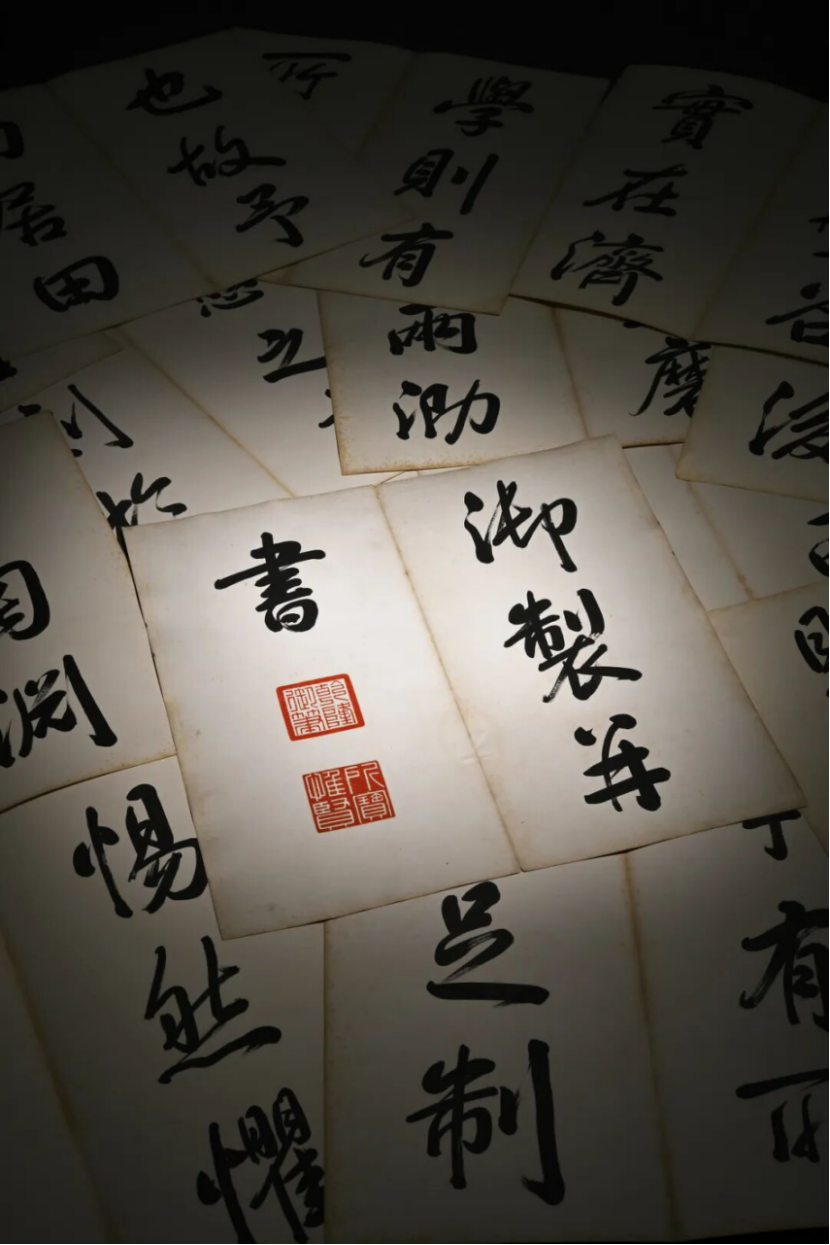 實在濟
學則有
所
也故予
居田
磨
雨泐
於
御製并
書
乾隆御筆
所寶惟賢
淵
有
足制
惕然懼